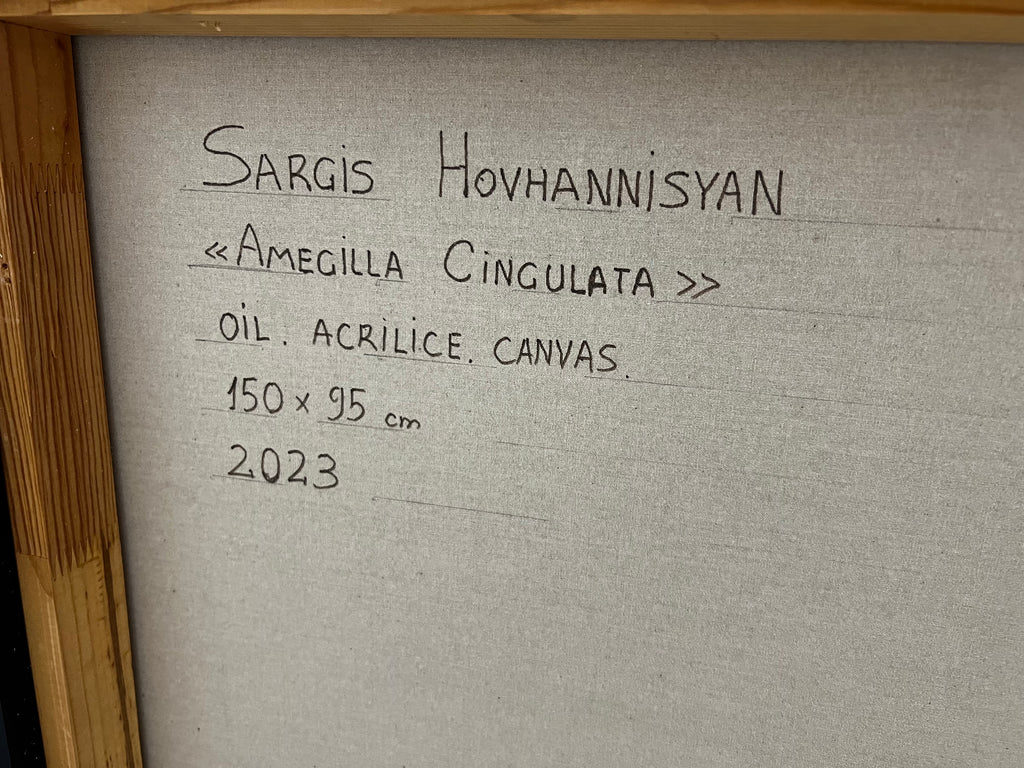 SARGiS HOVHANNiSYAN
«AMEGiLLA CiNGULATA»
OiL. ACRiLiCE. CANVAS.
150 × 95 cm
2023